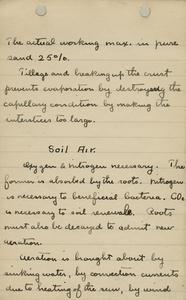 The actual working max. in pure
sand 25%.
Tillage and breaking up the crust
prevents evaporation by destroying the
capillary condition by making the
interstices too large.
Soil Air.
Oxygen & nitrogen necessary. The
former is absorbed by the roots. Nitrogen
is necessary to beneficial bacteria. CO2
is necessary to soil renewals. Roots
must also be decayed to admit new
aeration.
Aeration is brought about by
sinking water, by convection currents
due to heating of the sun, by wind